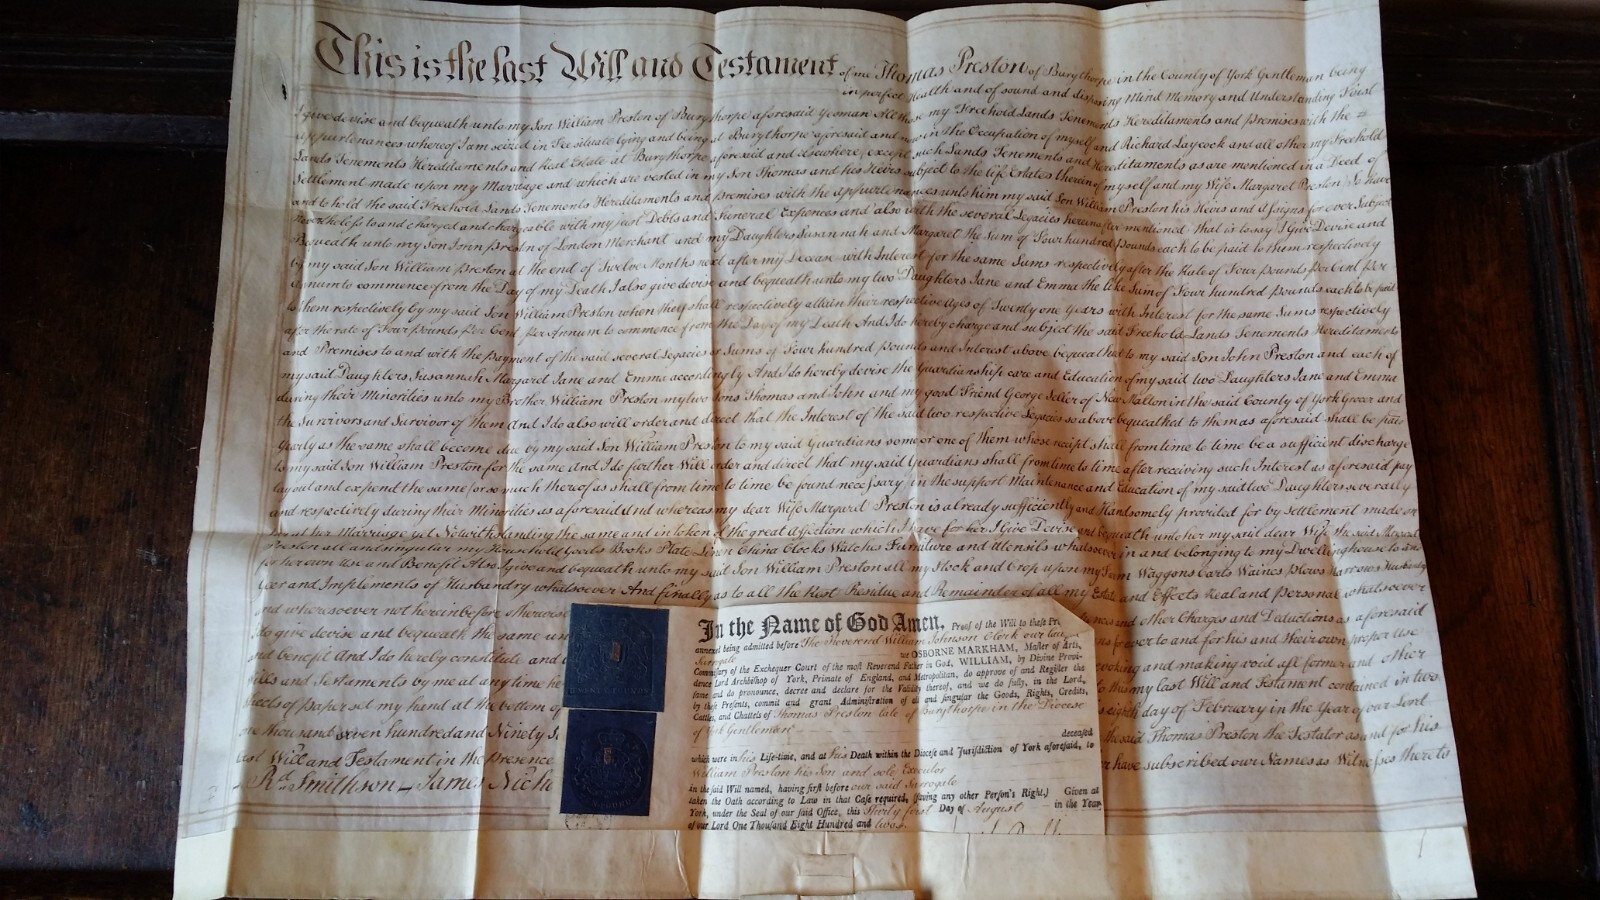 This is the last Will and Testament of me Thomas Preston of Burythorpe in the County of York Gentleman being
in perfect Health and of sound and disposing Mind Memory and Understanding First
I give devise and bequeath unto my Son William Preston of Burythorpe aforesaid Yeoman All those my Freehold Lands Tenements Hereditaments and Premises with the
appurtenances whereof I am seized in Fee situate lying and being at Burythorpe aforesaid and now in the Occupation of myself and Richard Laycock and all other my Freehold
Lands Tenements Hereditaments and Real Estate at Burythorpe aforesaid and elsewhere (except such Lands Tenements and Hereditaments as are mentioned in a Deed of
Settlement made upon my Marriage and which are vested in my Son Thomas and his Heirs subject to the life Estates therein of myself and my Wife Margaret Preston) To have
and to hold the said Freehold Lands Tenements Hereditaments and Premises with the appurtenances unto him my said Son William Preston his Heirs and Assigns for ever Subject
Nevertheless to and charged and chargeable with my just Debts and Funeral Expences and also with the several Legacies hereinafter mentioned that is to say I Give Devise and
Bequeath unto my Son John Preston of London Merchant and my Daughters Susannah and Margaret the Sum of Four hundred Pounds each to be paid to them respectively
by my said Son William Preston at the end of Twelve Months next after my Decease with Interest for the same Sums respectively after the Rate of Four Pounds Per Cent Per
Annum to commence from the Day of my Death I also give devise and bequeath unto my two Daughters Jane and Emma the like Sum of Four hundred Pounds each to be paid
to them respectively by my said Son William Preston when they shall respectively attain their respective Ages of Twenty one Years with Interest for the same Sums respectively
after the rate of Four Pounds Per Cent Per Annum to commence from the Day of my Death And I do hereby charge and subject the said Freehold Lands Tenements Hereditaments
and Premises to and with the payment of the said several Legacies or Sums of Four hundred Pounds and Interest above bequeathed to my said Son John Preston and each of
my said Daughters Susannah Margaret Jane and Emma accordingly And I do hereby devise the Guardianship care and Education of my said two Daughters Jane and Emma
during their Minorities unto my Brother William Preston my two Sons Thomas and John and my good Friend George Seller of New Malton in the said County of York Grocer and
the Survivors and Survivor of them And I do also will order and direct that the Interest of the said two respective Legacies so above bequeathed to them as aforesaid shall be paid
Yearly as the same shall become due by my said Son William Preston to my said Guardians some or one of them whose receipt shall from time to time be a sufficient discharge
to my said Son William Preston for the same And I do further Will order and direct that my said Guardians shall from time to time after receiving such Interest as aforesaid pay
lay out and expend the same or so much thereof as shall from time to time be found necessary in the support Maintenance and Education of my said two Daughters severally
and respectively during their Minorities as aforesaid And whereas my dear Wife Margaret Preston is already sufficiently and Handsomely provided for by Settlement made on
her Marriage yet Notwithstanding the same and in token of the great Affection which I have for her I Give Devise and Bequeath unto her my said dear Wife the said Margaret
Preston all and singular my Household Goods Books Plate Linen China Clocks Watches Furniture and Utensils whatsoever in and belonging to my Dwellinghouse to and
for her own Use and Benefit Also I give and bequeath unto my said Son William Preston all my Stock and Crop upon my Farm Waggons Carts Waines Plows Harrows Husbandry
Geer and Implements of Husbandry whatsoever And finally as to all the Rest Residue and Remainder of all my Estate and Effects Real and Personal whatsoever
and wheresoever not hereinbefore otherwise and other Charges and Deductions as aforesaid
I do give devise and bequeath the same un for ever to and for his and their own proper Use
and benefit And I do hereby constitute and revoking and making void all former and other
Wills and Testaments by me at any time he this my last Will and Testament contained in two
sheets of paper set my hand at the bottom of eighth day of February in the Year of our Lord
one thousand seven hundred and Ninety the said Thomas Preston the Testator as and for his
last Will and Testament in the presence have subscribed our Names as Witnesses thereto
Rd. Smithson James Nich
In the Name of God Amen. Proof of the Will to these
annexed being admitted before The Reverend William Johnson Clerk our
Surrogate OSBORNE MARKHAM, Master of Arts,
Commissary of the Exchequer Court of the most Reverend Father in God, WILLIAM, by Divine Provi-
dence Lord Archbishop of York, Primate of England, and Metropolitan, do approve of and Register the
same and do pronounce, decree and declare for the Validity thereof, and we do fully, in the Lord,
by these Presents, commit and grant Administration of all and singular the Goods, Rights, Credits,
Cattles, and Chattels of Thomas Preston late of Burythorpe in the Diocese
of York Gentleman
deceased
which were in his Life-time, and at his Death within the Diocese and Jurisdiction of York aforesaid, to
William Preston his Son and sole Executor
in the said Will named, having first before our said Surrogate
taken the Oath according to Law in that Case required, (saving any other Person's Right.) Given at
York, under the Seal of our said Office, this Thirty first Day of August in the Year
of our Lord One Thousand Eight Hundred and two